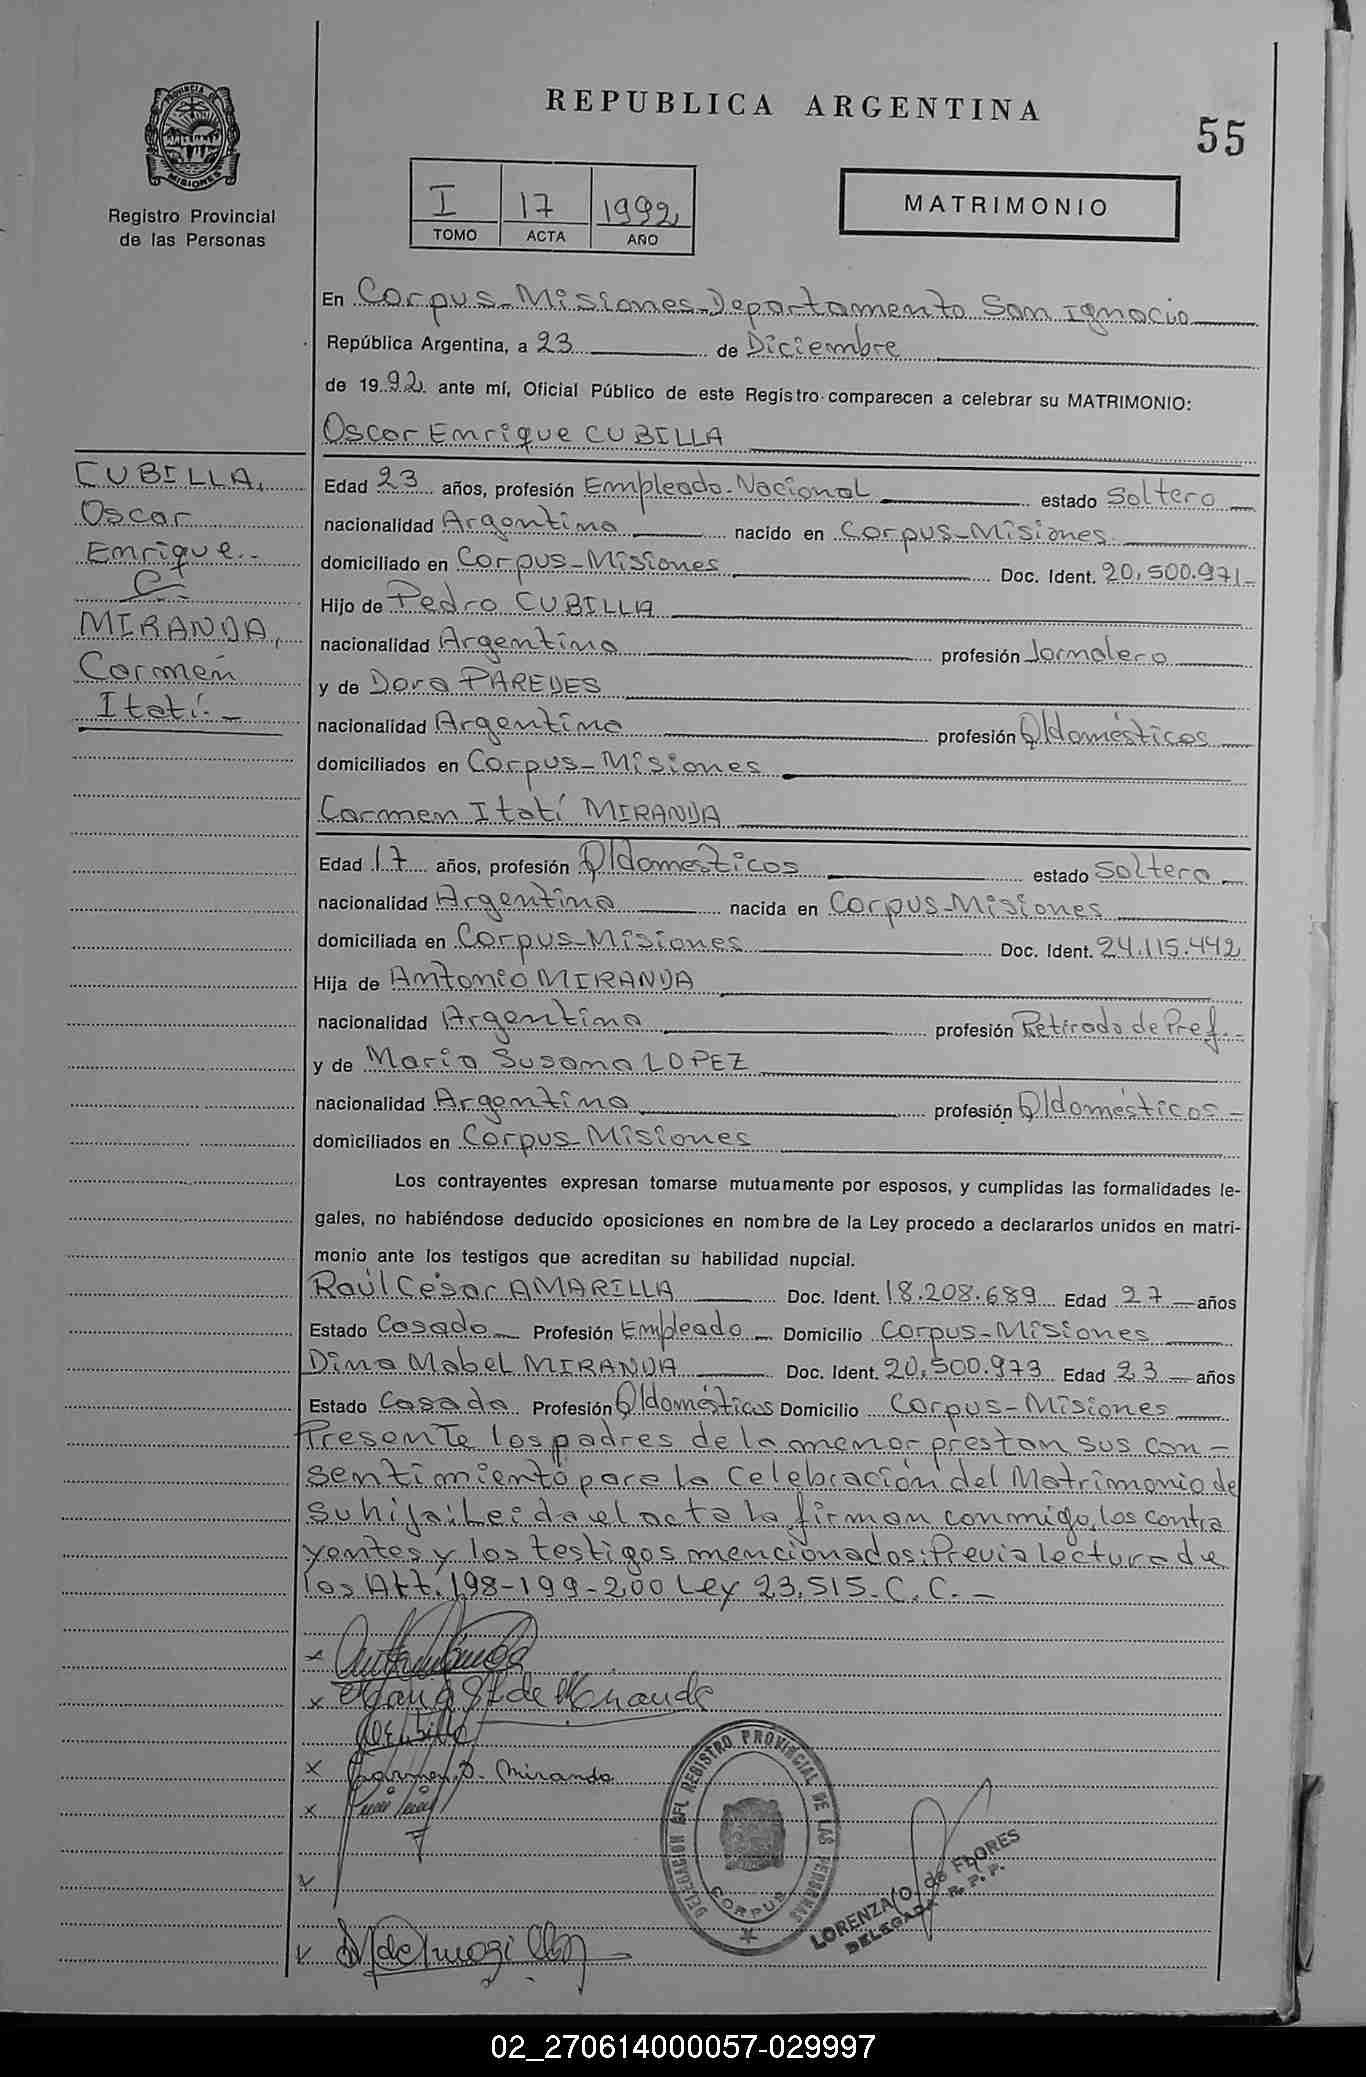 REPUBLICA ARGENTINA
55
PROVINCIA DE
MISIONES
Registro Provincial
de las Personas
I 17 1992
TOMO ACTA AÑO
MATRIMONIO
En Corpus-Misiones-Departamento San Ignacio
República Argentina, a 23 de Diciembre
de 1992 ante mí, Oficial Público de este Registro comparecen a celebrar su MATRIMONIO:
Oscar Enrique CUBILLA
CUBILLA,
Oscar
Enrique.-
C/
MIRANDA,
Carmen
Itatí.-
Edad 23 años, profesión Empleado-Nacional estado Soltero
nacionalidad Argentina nacido en Corpus-Misiones
domiciliado en Corpus-Misiones Doc. Ident. 20.500.971-
Hijo de Pedro CUBILLA
nacionalidad Argentina profesión Jornalero
y de Dora PAREDES
nacionalidad Argentina profesión Q/domésticos
domiciliados en Corpus-Misiones
Carmen Itatí MIRANDA
Edad 17 años, profesión Q/domesticos estado Soltera
nacionalidad Argentina nacida en Corpus-Misiones
domiciliada en Corpus-Misiones Doc. Ident. 24.115.442
Hija de Antonio MIRANDA
nacionalidad Argentina profesión Retirado de Pref.-
y de Maria Susana LOPEZ
nacionalidad Argentina profesión Q/domésticos-
domiciliados en Corpus-Misiones
Los contrayentes expresan tomarse mutuamente por esposos, y cumplidas las formalidades le-
gales, no habiéndose deducido oposiciones en nombre de la Ley procedo a declararlos unidos en matri-
monio ante los testigos que acreditan su habilidad nupcial.
Raúl César AMARILLA Doc. Ident. 18.208.689 Edad 27 años
Estado Casado Profesión Empleado Domicilio Corpus-Misiones
Dina Mabel MIRANDA Doc. Ident. 20.500.973 Edad 23 años
Estado Casada Profesión Q/domésticos Domicilio Corpus-Misiones
Presente los padres de la menor prestan sus con-
sentimiento para la Celebración del Matrimonio de
su hija: Leida el acta la firman conmigo, los contra
yentes y los testigos mencionados: Previa lectura de
los Art. 198-199-200 Ley 23.515-C.C.-
Carmen I. Miranda
DELEGACION DEL REGISTRO PROVINCIAL DE LAS PERSONAS
CORPUS
LORENZA O. de FLORES
DELEGADA R. P. P.
02_270614000057-029997